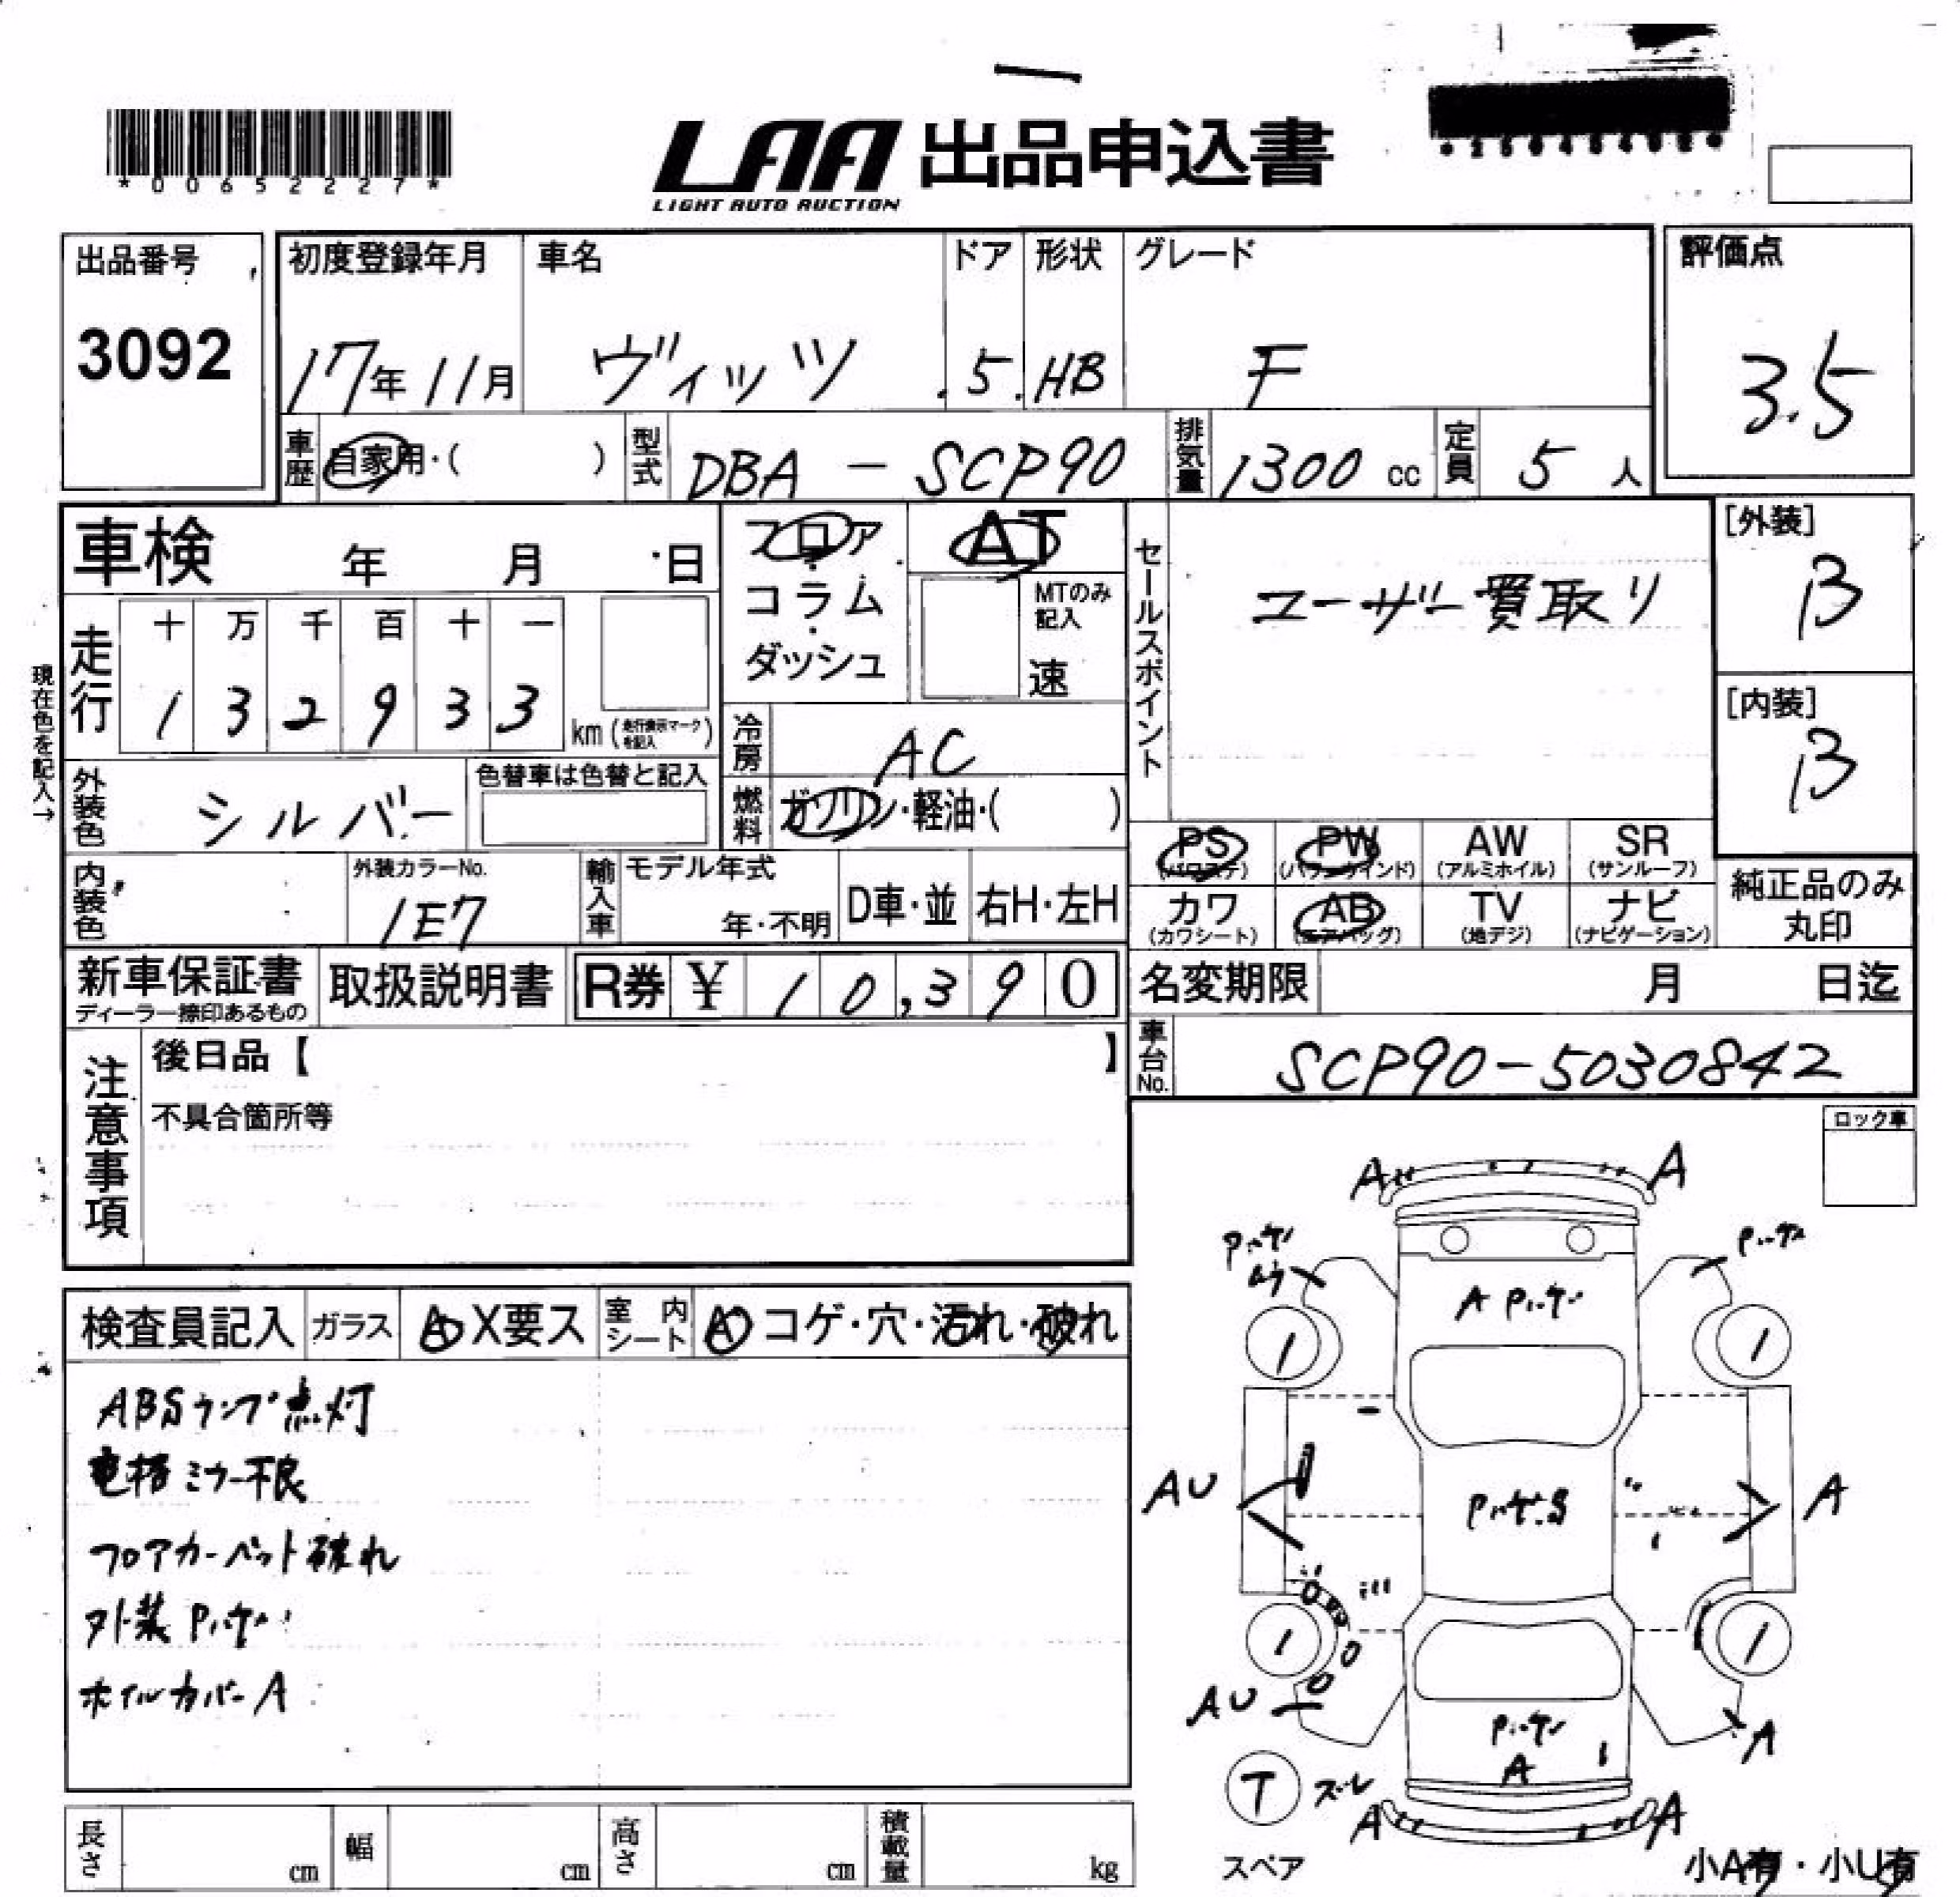 *00652227*
LAA 出品申込書
LIGHT AUTO AUCTION
出品番号
3092
初度登録年月
17年11月
車名
ヴィッツ
ドア
5
形状
HB
グレード
F
評価点
3.5
車歴
自家用・( )
型式
DBA-SCP90
排気量
1300 cc
定員
5 人
車検 年 月 日
フロア・コラム・ダッシュ
AT
MTのみ記入
速
セールスポイント
ユーザー買取り
[外装]
B
[内装]
B
現在色を記入→
走行
十 万 千 百 十 一
1 3 2 9 3 3
km (走行表示マークを記入)
冷房
AC
外装色
シルバー
色替車は色替と記入
燃料
ガソリン・軽油・( )
PS (パワステ)
PW (パワーウインド)
AW (アルミホイル)
SR (サンルーフ)
カワ (カワシート)
AB (エアバッグ)
TV (地デジ)
ナビ (ナビゲーション)
純正品のみ丸印
内装色
外装カラーNo.
1E7
輸入車
モデル年式
年・不明
D車・並
右H・左H
新車保証書
ディーラー捺印あるもの
取扱説明書
R券 ¥ 10,390
名変期限 月 日迄
車台No.
SCP90-5030842
注意事項
後日品【 】
不具合箇所等
ロック車
検査員記入
ガラス
A X要ス
室内シート
A コゲ・穴・汚れ・破れ
ABSランプ点灯
電格ミラー不良
フロアカーペット破れ
外装Pハゲ
ホイルカバーA
A A
Pハゲ
Pハゲ
A Pハゲ
1 1
AU
A
1 1
AU
Pハゲ
A
A
T
ズレ
A A
スペア
小A有・小U有
長さ cm
幅 cm
高さ cm
積載量 kg